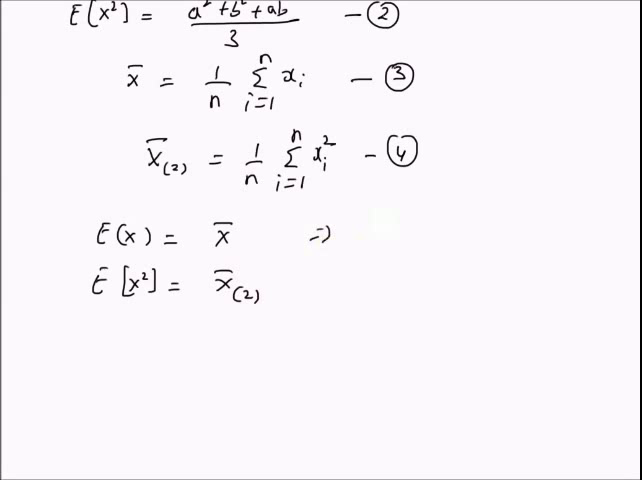 E[x²] = a² + b² + ab / 3 — ②
x̄ = 1/n Σ i=1 n xᵢ — ③
X̄₍₂₎ = 1/n Σ i=1 n xᵢ² — ④
E(x) = x̄ ⇒
E[x²] = x̄₍₂₎